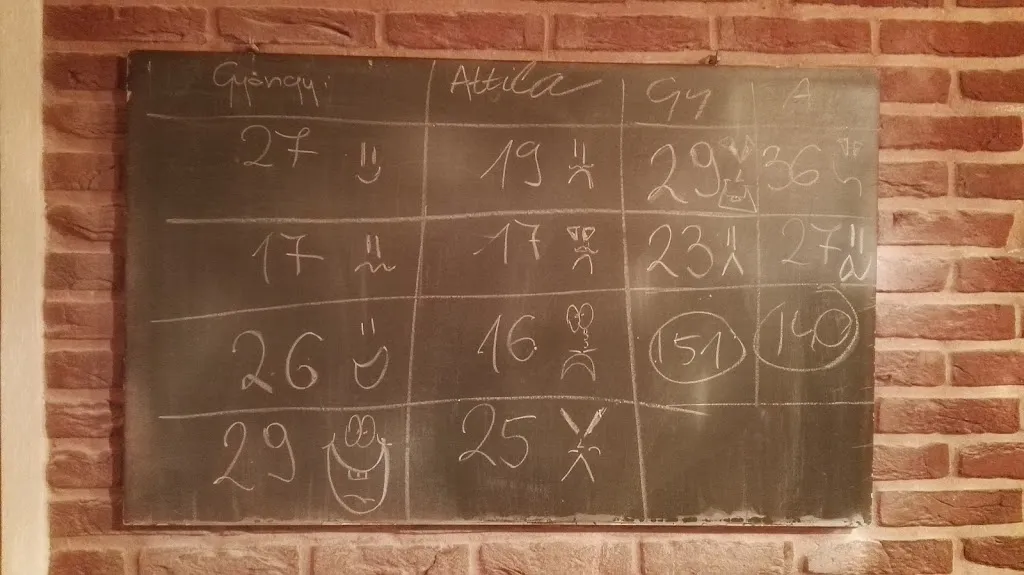 Gyöngyi Attila Gy A
27 19 29 36
17 17 23 27
26 16 151 140
29 25